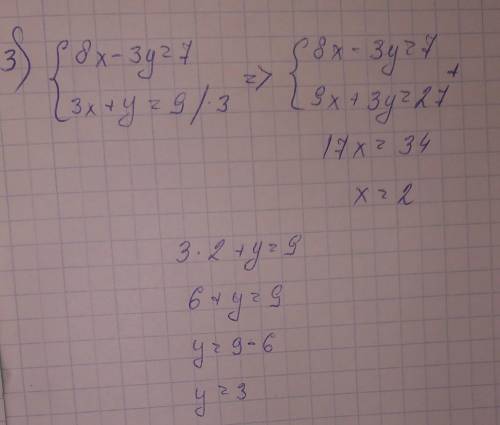 3) { 8x - 3y = 7 => { 8x - 3y = 7
3x + y = 9 / · 3 9x + 3y = 27 +
17x = 34
x = 2
3 · 2 + y = 9
6 + y = 9
y = 9 - 6
y = 3